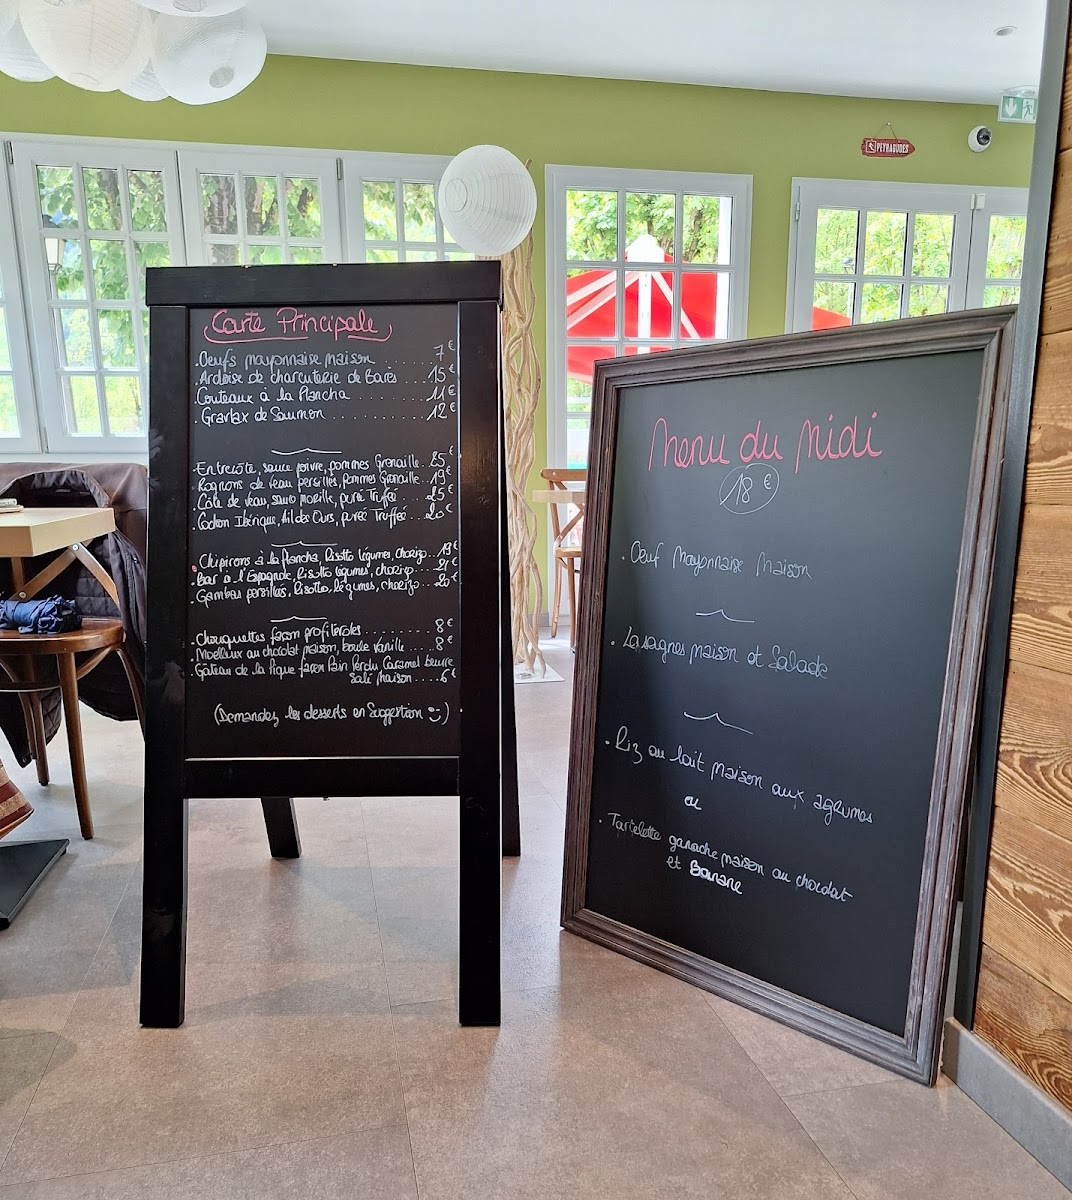 PEYRAGUDES
Carte Principale
. Oeufs mayonnaise maison ........ 7€
. Ardoise de charcuterie de Barès ... 15€
. Couteaux à la Plancha ........ 11€
. Gravlax de Saumon ........ 12€
. Entrecôte, sauce poivre, pommes Grenaille.. 25€
. Rognons de veau persillés, pommes Grenaille.. 19€
. Côte de veau, sauce morille, purée Truffée ... 25€
. Cochon Ibérique, Ail des Ours, purée Truffée ... 20€
. Chipirons à la Plancha, Risotto légumes, chorizo.. 19€
. Bar à l'Espagnole, Risotto légumes, chorizo.... 21€
. Gambas persillées, Risotto, légumes, chorizo.... 20€
. Chouquettes façon profiteroles .......... 8€
. Moelleux au chocolat maison, boule Vanille ... 8€
. Gâteau de la Pique façon Pain Perdu Caramel beurre
salé Maison ..... 6€
(Demandez les desserts en Suggestion)
Menu du Midi
18 €
. Oeuf Mayonnaise Maison
. Lasagnes maison et Salade
. Riz au lait maison aux agrumes
ou
. Tartelette ganache maison au chocolat
et Banane